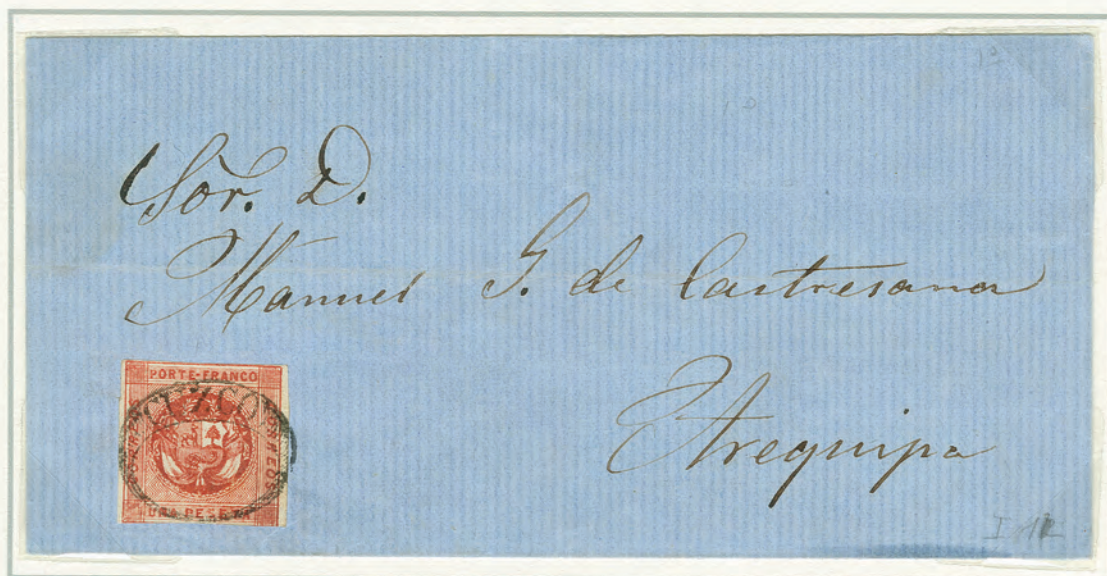 Sor. D.
Manuel G. de Castresana
Arequipa
PORTE-FRANCO
CUZCO
CORREOS
UNA PESETA